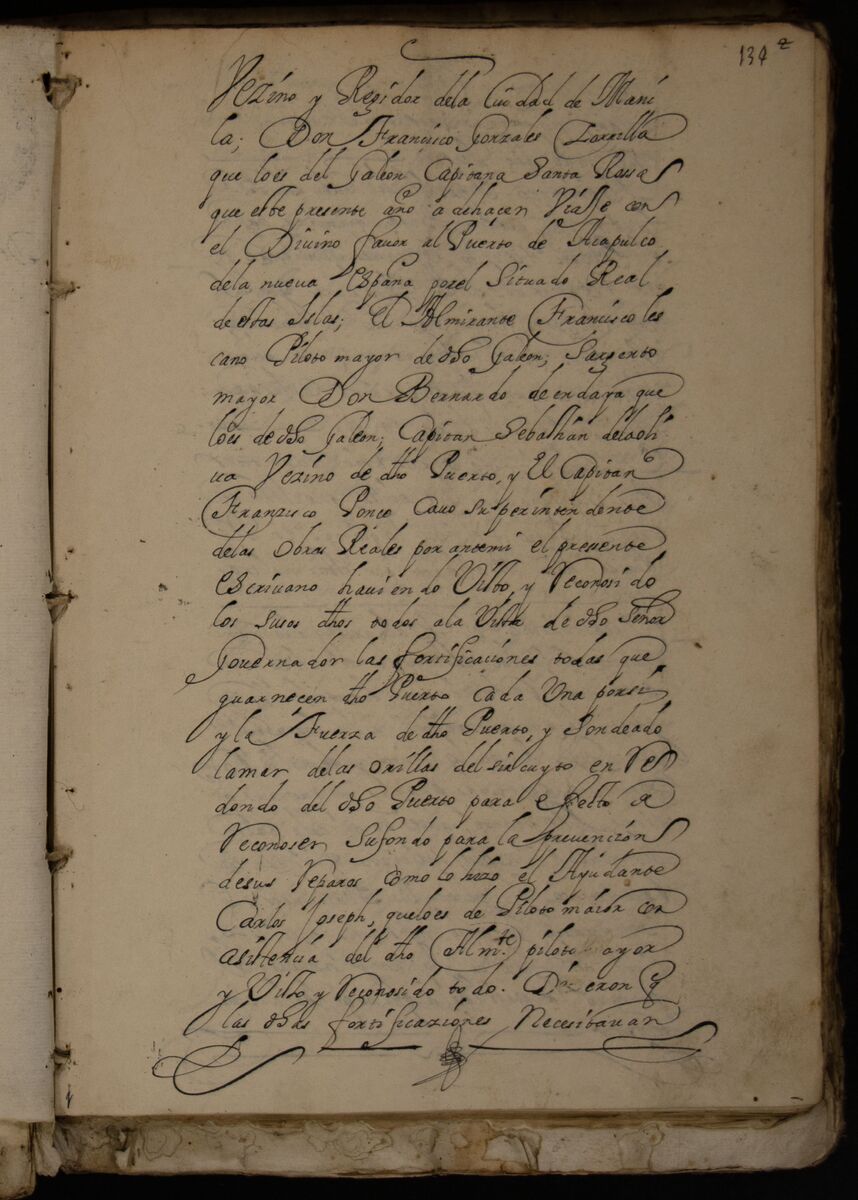 134 2
Vezino y Regidor dela Ciudad de Mani
la; Don Francisco Gonzales Zorrilla
que loes del Galeon Capitana Santa Rossa
que este presente año a dehacer Viasse con
el Divino favor al Puerto de Acapulco
dela nueva españa porel Situado Real
de estas Islas; El Almirante Francisco les
cano Piloto mayor de dho Galeon; Sargento
mayor Don Bernardo de endaya que
loes de dho Galeon; Capitan Sebasthian delaoli
ua Vezino de dho Puerto, y El Capitan
Franzisco Ponce Cauo superintendente
delas Obras Reales por antemi el presente
escriuano hauiendo Visto, y Reconosido
los susos dhos todos ala Vista de dho Señor
Gouernador las fortificaciones todas que
guarnecen dho Puerto Cada Una porsi
y la Fuerza de dho Puerto, y Sondeado
lamar delas orillas del sircuyto en Re
dondo del dho Puerto para efecto a
Reconoser sufondo para la prevenzion
desus Reparos como lo hizo el Ayudante
Carlos Joseph, queloes de Piloto maior con
asistencia del dho Almte piloto ayor
y Visto y Reconosido todo. Dixeron q
las dhas fortificaziones Necesitauan